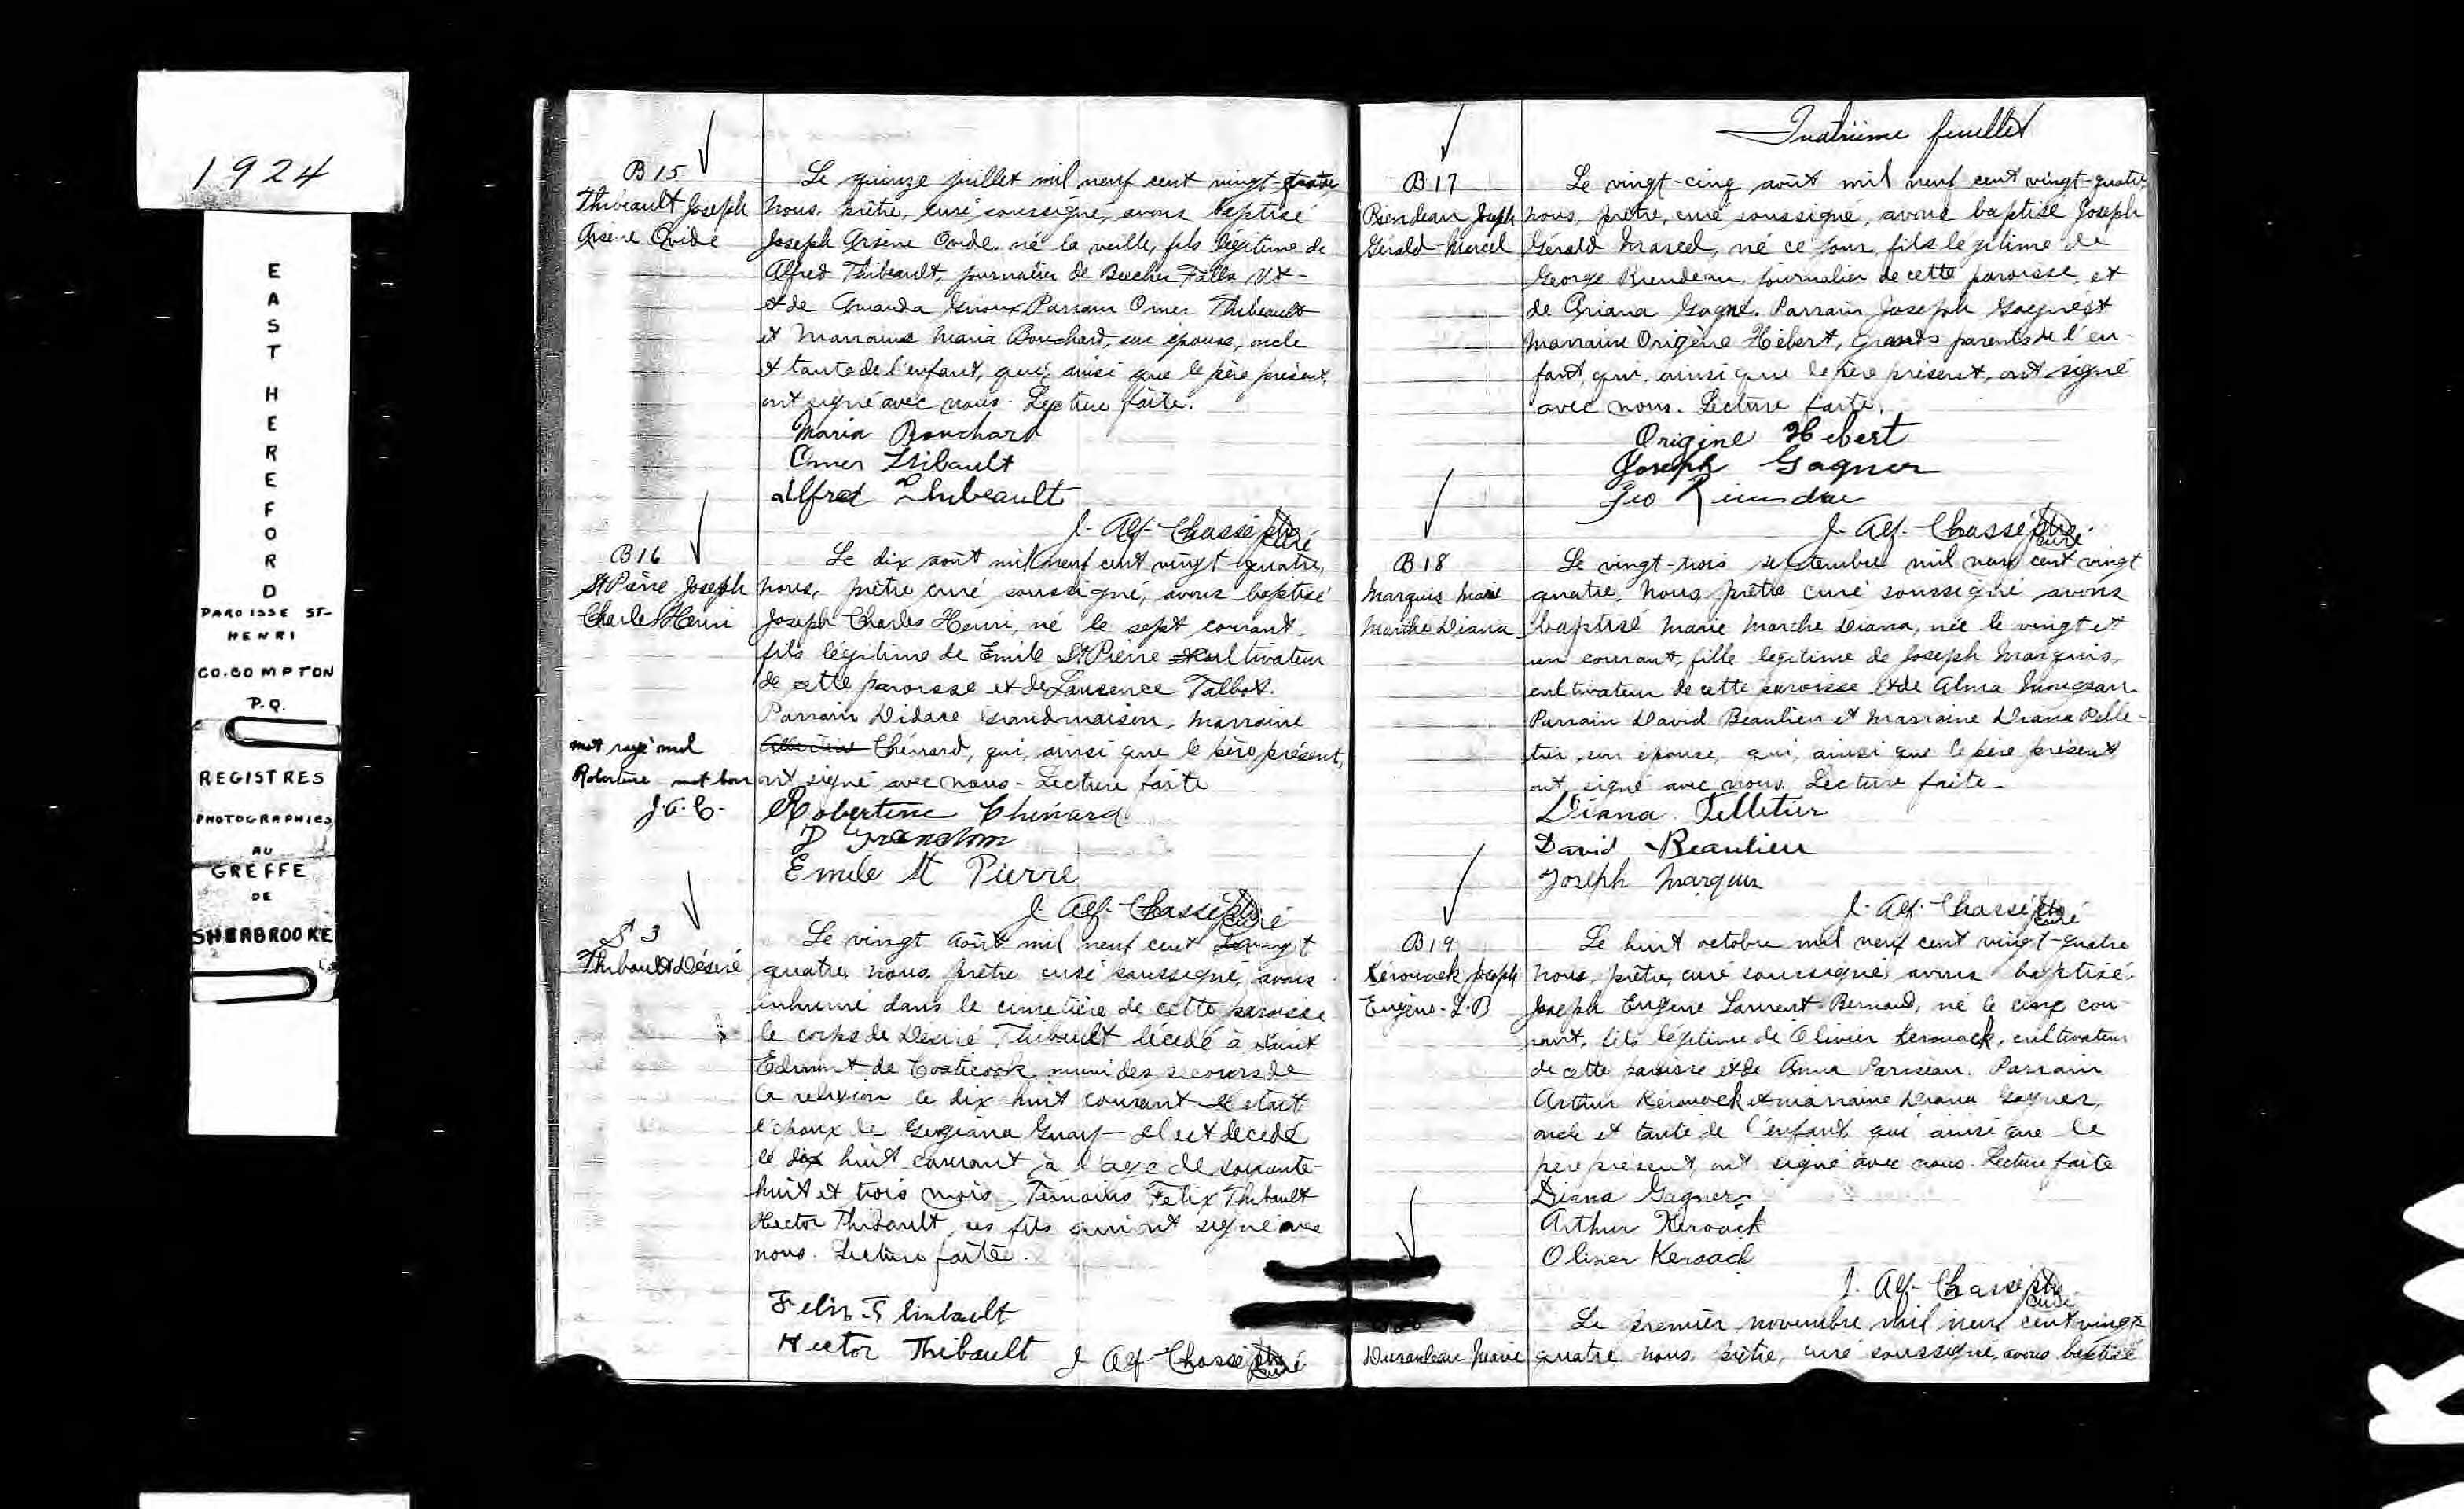 1924
EAST HEREFORD
PAROISSE ST-
HENRI
CO. COMPTON
P.Q.
REGISTRES
PHOTOGRAPHIES
AU
GREFFE
DE
SHERBROOKE
B 15
Thibeault Joseph
Arsène Ovide
Le quinze juillet mil neuf cent vingt-quatre
nous, prêtre, curé soussigné, avons baptisé
Joseph Arsène Ovide, né la veille, fils légitime de
Alfred Thibeault, journalier de Beecher Falls Vt-
et de Amanda Giroux Parrain Omer Thibeault
et Marraine Maria Bouchard, son épouse, oncle
et tante de l'enfant, qui, ainsi que le père présent,
ont signé avec nous. Lecture faite.
Maria Bouchard
Omer Thibault
Alfred Thibeault
J. Alf. Chassé ptre
curé
B 16
St Pierre Joseph
Charles Henri
Le dix août mil neuf cent vingt-quatre,
nous, prêtre curé soussigné, avons baptisé
Joseph Charles Henri, né le sept courant
fils légitime de Emile St Pierre cultivateur
de cette paroisse et de Laurence Talbot.
Parrain Didace Grandmaison, marraine
Chénard, qui, ainsi que le père présent,
ont signé avec nous - Lecture faite
mot rayé nul
Robertine mot bon
J.A.C.
Robertine Chénard
D Grandm
Emile St Pierre
J. Alf. Chassé ptre
curé
S 3
Thibault Désiré
Le vingt août mil neuf cent vingt
quatre, nous, prêtre curé soussigné, avons
inhumé dans le cimetière de cette paroisse
le corps de Désiré Thibault décédé à Saint
Edmond de Coaticook muni des secours de
la religion le dix-huit courant Il était
l'époux de Georgiana Guay - Il est décédé
le dix huit courant à l'age de soixante-
huit et trois mois. Témoins Felix Thibault
Hector Thibault, ses fils qui ont signé avec
nous. Lecture faite.
Felix Thibault
Hector Thibault
J Alf. Chassé ptre
curé
Quatrième feuillet
B 17
Riendeau Joseph
Gérald-Marcel
Le vingt-cinq août mil neuf cent vingt-quatre,
nous, prêtre, curé soussigné, avons baptisé Joseph
Gérald Marcel, né ce jour, fils légitime de
George Riendeau, journalier de cette paroisse, et
de Ariana Gagné. Parrain Joseph Gagné et
Marraine Origène Hébert, Grands parents de l'en-
fant, qui, ainsi que le père présent, ont signé
avec nous. Lecture faite.
Origine Hebert
Joseph Gagner
Geo
J. Alf. Chassé ptre
curé
B 18
Marquis Marie
Marthe Diana
Le vingt-trois septembre mil neuf cent vingt
quatre, nous, prêtre curé soussigné avons
baptisé Marie Marthe Diana, née le vingt et
un courant, fille légitime de Joseph Marquis,
cultivateur de cette paroisse et de Alma Mongeau
Parrain David Beaulieu et marraine Diana Pelle-
tier, son épouse, qui, ainsi que le père présent
ont signé avec nous. Lecture faite-
Diana Pelletier
David Beaulieu
Joseph Marquis
J. Alf. Chassé ptre
curé
B 19
Kérouack Joseph
Eugène-L.B
Le huit octobre mil neuf cent vingt-quatre
nous, prêtre, curé soussigné, avons baptisé
Joseph Eugène Laurent Bernard, né le cinq cou-
rant, fils légitime de Olivier Kerouack, cultivateur
de cette paroisse et de Anna Pariseau. Parrain
Arthur Kérouack et marraine Diana Gagner,
oncle et tante de l'enfant, qui ainsi que le
père présent, ont signé avec nous. Lecture faite
Diana Gagner
Arthur Keroack
Oliver Keroack
J. Alf. Chassé ptre
curé
Duranleau Marie
Le premier novembre mil neuf cent vingt
quatre, nous, prêtre, curé soussigné, avons baptisé